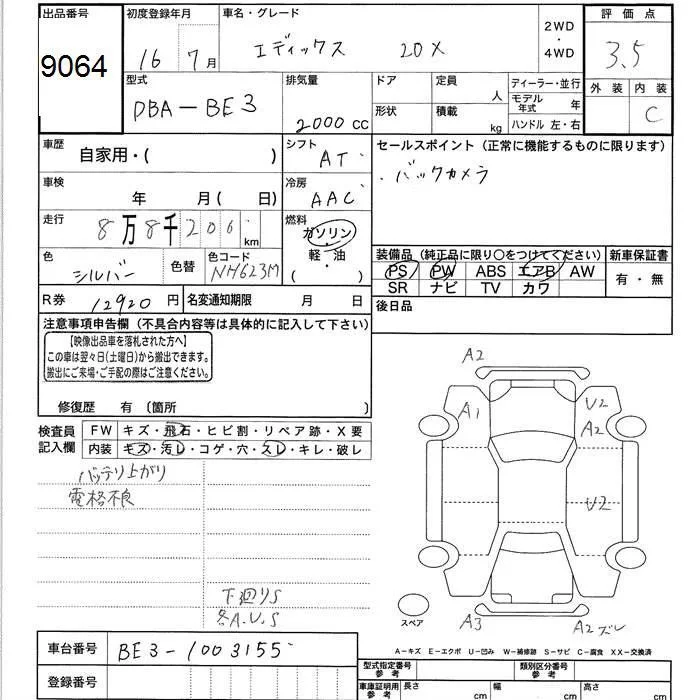 出品番号
9064
初度登録年月
16年 7月
車名・グレード
エディックス 20X
2WD
・
4WD
評価点
3.5
外装 内装
C
型式
DBA-BE3
排気量
2000 cc
ドア
定員
人
形状
積載
kg
ディーラー・並行
モデル年式 年
ハンドル 左・右
車歴
自家用・( )
シフト
AT
車検
年 月( 日)
冷房
AAC
走行
8万8千206 km
燃料
ガソリン
・
軽・油
( )
色
シルバー
色替
色コード
NH623M
R券 12920 円
名変通知期限 月 日
セールスポイント (正常に機能するものに限ります)
・バックカメラ
装備品 (純正品に限り〇をつけてください)
PS PW ABS エアB AW
SR ナビ TV カワ
新車保証書
有・無
後日品
注意事項申告欄 (不具合内容等は具体的に記入して下さい)
【映像出品車を落札された方へ】
この車は翌々日(土曜日)から搬出できます。
搬出にご来場・ご手配の際はご注意ください。
修復歴 有 〔箇所 〕
検査員
記入欄
FW キズ・飛石・ヒビ割・リペア跡・X要
内装 キズ・汚レ・コゲ・穴・スレ・キレ・破レ
バッテリ上がり
電格不良
下廻りS
各A.U.S
A2
A1
U2
A2
U2
A3
A2ズレ
スペア
A-キズ E-エクボ U-凹み W-補修跡 S-サビ C-腐食 XX-交換済
車台番号
BE3-1003155
登録番号
型式指定番号
参考
類別区分番号
参考
車庫証明用
参考
長さ cm
幅 cm
高さ cm